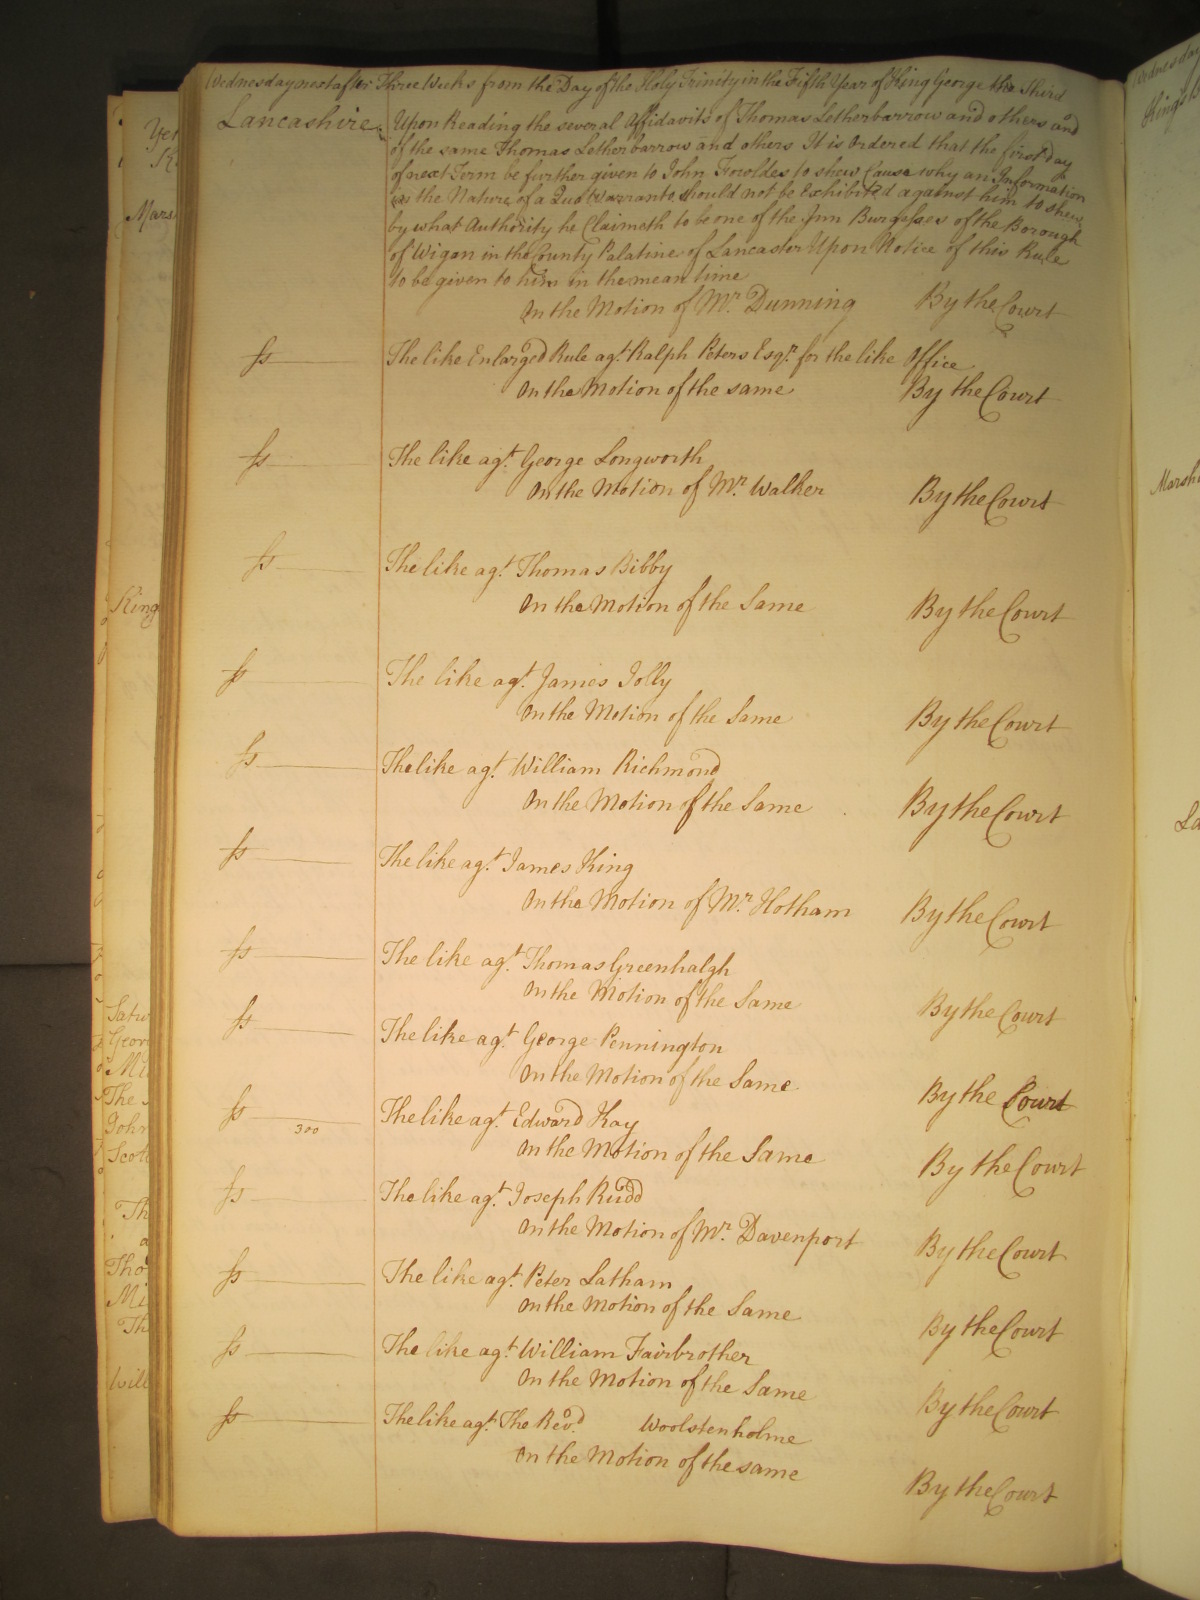 Wednesday next after Three Weeks from the Day of the Holy Trinity in the Fifth Year of King George the Third
Lancashire. Upon Reading the several Affidavits of Thomas Letherbarrow and others and
of the same Thomas Letherbarrow and others It is Ordered that the first day
of next Term be further given to John Fowldes to shew Cause why an Information
in the Nature of a Quo Warranto should not be Exhibited against him to shew
by what Authority he Claimeth to be one of the Inn Burgesses of the Borough
of Wigan in the County Palatine of Lancaster Upon Notice of this Rule
to be given to him in the mean time
On the Motion of Mr. Dunning By the Court
ss The like Enlarged Rule agt. Ralph Peters Esqr. for the like Office
On the Motion of the same By the Court
ss The like agt. George Longworth
On the Motion of Mr. Walker By the Court
ss The like agt. Thomas Bibby
On the Motion of the Same By the Court
ss The like agt. James Jolly
On the Motion of the Same By the Court
ss The like agt. William Richmond
On the Motion of the Same By the Court
ss The like agt. James King
On the Motion of Mr. Hotham By the Court
ss The like agt. Thomas Greenhalgh
On the Motion of the Same By the Court
ss The like agt. George Pennington
On the Motion of the Same By the Court
ss 300 The like agt. Edward Kay
On the Motion of the Same By the Court
ss The like agt. Joseph Rudd
On the Motion of Mr. Davenport By the Court
ss The like agt. Peter Latham
On the Motion of the Same By the Court
ss The like agt. William Fairbrother
On the Motion of the Same By the Court
ss The like agt. The Revd. Woolstenholme
On the Motion of the same By the Court